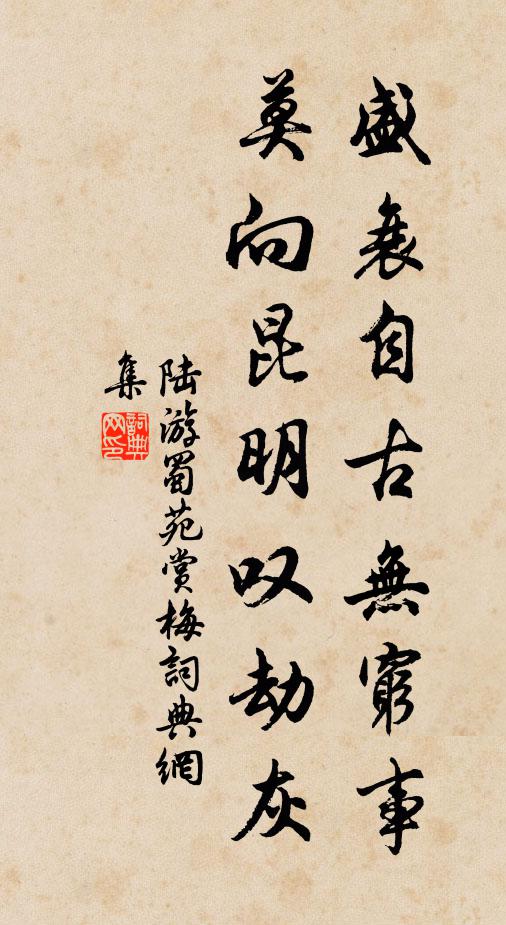 盛衰自古無窮事
莫向昆明叹劫灰
陆游蜀苑赏梅詞典網
集
詞典
网印